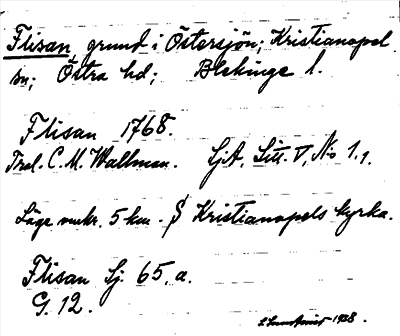 Flisan, grund i Östersjön; Kristianopel
sn; Östra hd; Blekinge l.
Flisan 1768.
C. M. Wallman. SjA, Litt. V, No 1.1.
Läge omkr. 5 km. S Kristianopels kyrka.
Flisan Sj. 65, a.
G. 12.
1938.